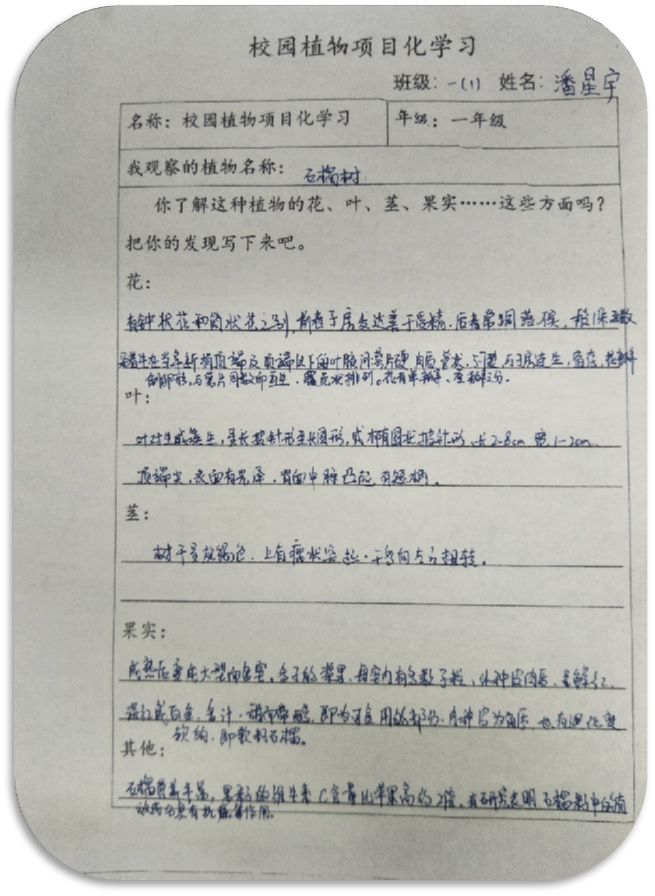 校园植物项目化学习
班级：一(1) 姓名：潘星宇
名称：校园植物项目化学习 年级：一年级
我观察的植物名称： 石榴树
你了解这种植物的花、叶、茎、果实……这些方面吗？
把你的发现写下来吧。
花：
有钟状花和筒状花之别，前者子房发达善于受精，后者常凋落
在当年新梢顶端及顶端以下的叶腋间 萼片硬，肉质，管状， 与子房连生，宿存，花瓣
倒卵形，与萼片同数而互生，覆瓦状排列。花有单瓣、重瓣之分。
叶：
叶对生或簇生，呈长披针形至长圆形，或椭圆状披针形，长2-8cm 宽1-2cm，
顶端尖，表面有光泽，背面中脉凸起，有短柄。
茎：
树干呈灰褐色，上有瘤状突起，干多向左方扭转。
果实：
成熟后变成大型而多室、多子的浆果，每室内有多数子粒，外种皮肉质，呈鲜红、
淡红或白色，多汁，甜而带酸，即为可食用的部分，内种皮为角质，也有退化变
软的，即软籽石榴。
其他：
石榴营养丰富，果 的维生素C含量比苹果高约2倍，有研究表明，石榴 中的有
效成分具有抗 等作用。